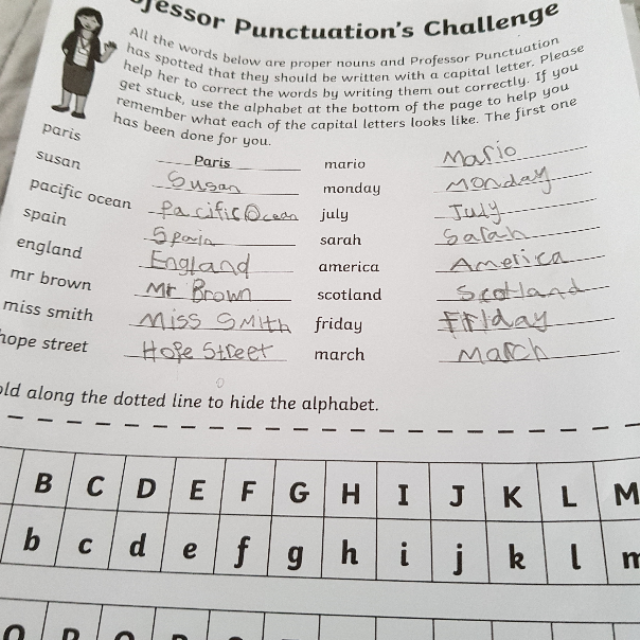 Professor Punctuation's Challenge
All the words below are proper nouns and Professor Punctuation
has spotted that they should be written with a capital letter. Please
help her to correct the words by writing them out correctly. If you
get stuck, use the alphabet at the bottom of the page to help you
remember what each of the capital letters looks like. The first one
has been done for you.
paris Paris mario Mario
susan Susan monday Monday
pacific ocean Pacific Ocean july July
spain Spain sarah Sarah
england England america America
mr brown Mr Brown scotland Scotland
miss smith Miss Smith friday Friday
hope street Hope Street march March
old along the dotted line to hide the alphabet.
B C D E F G H I J K L M
b c d e f g h i j k l m